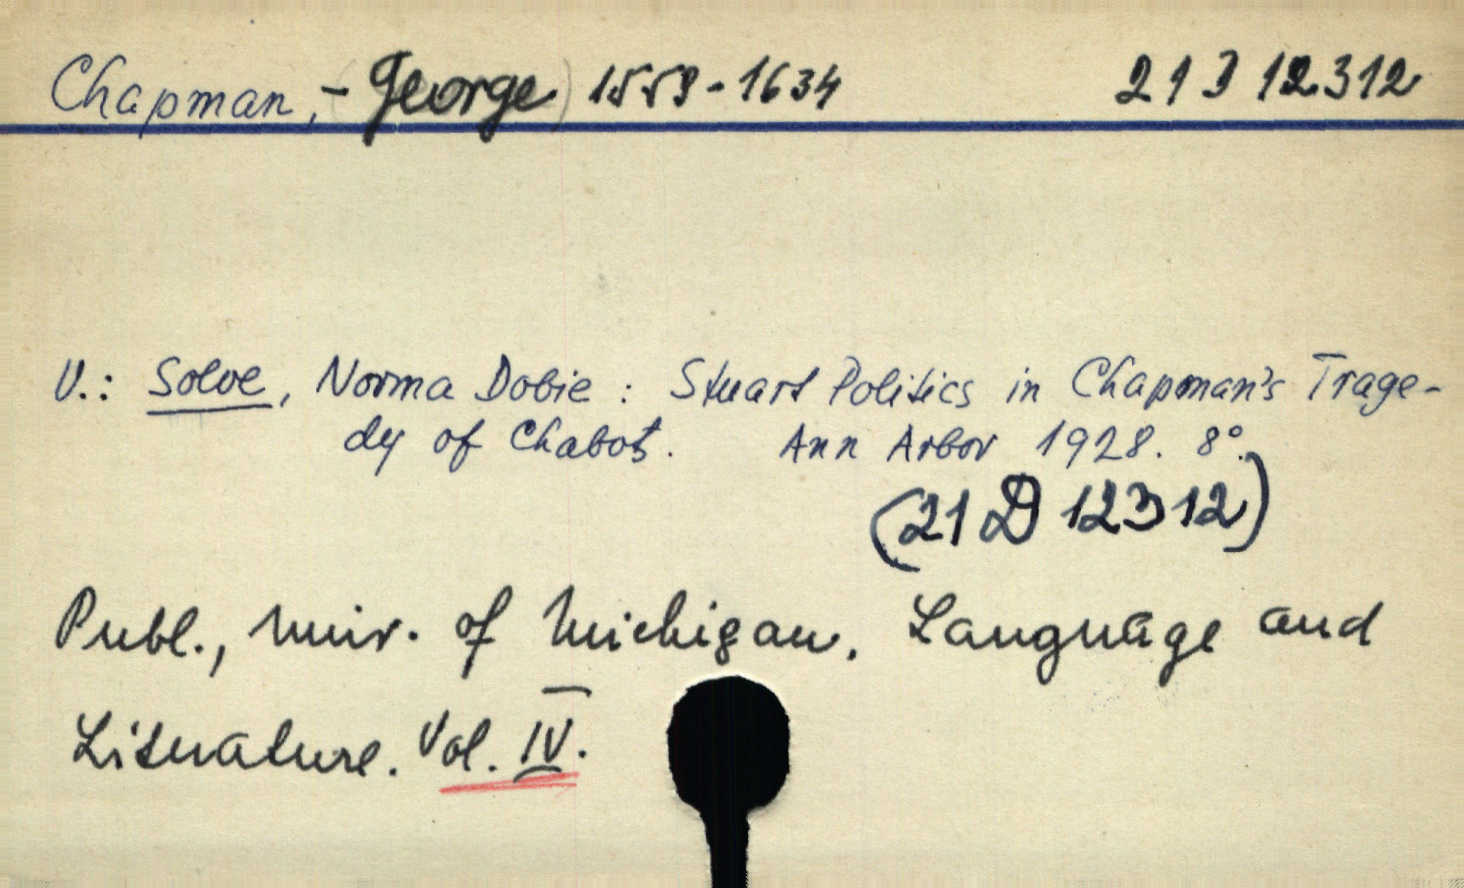 Chapman, - (George) 1559-1634 21 D 12312
V.: Solve, Norma Dobie: Stuart Politics in Chapman's Trage-
dy of Chabot. Ann Arbor 1928. 8°.
(21 D 12312)
Publ., Univ. of Michigan. Language and
Literature. Vol. IV.